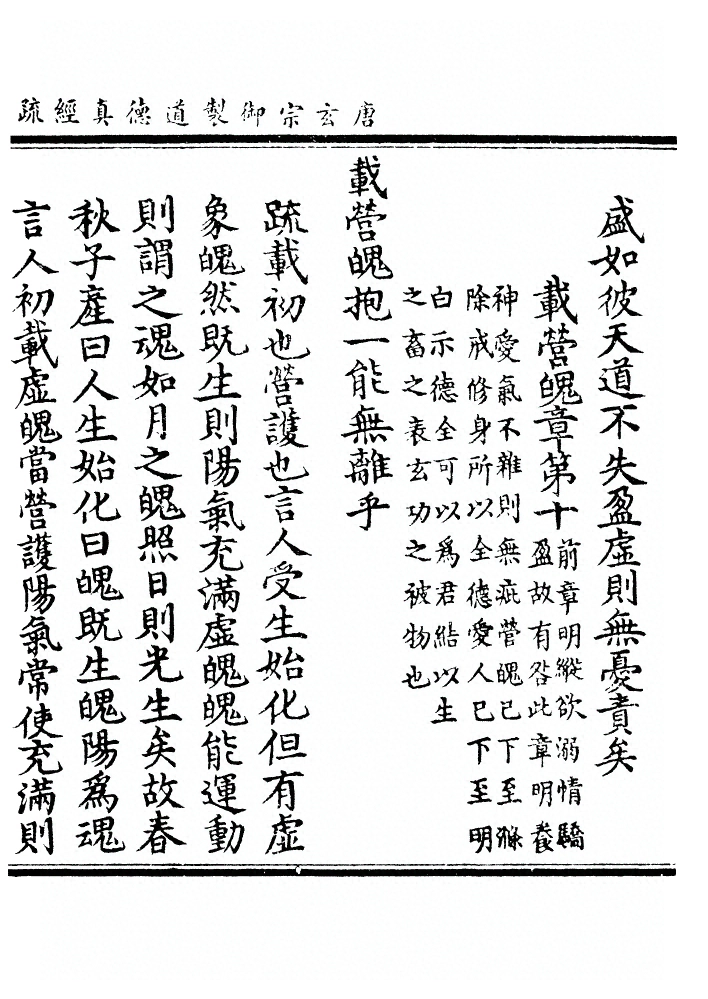 唐玄宗御製道德真經疏
盛如彼天道不失盈虛則無憂責矣
載營魄章第十
前章明縱欲溺情驕
盈故有咎此章明養
神愛氣不雜則無疵營魄已下至滌
除戒修身所以全德愛人已下至明
白示德全可以爲君結以生
之畜之表玄功之被物也
載營魄抱一能無離乎
疏載初也營護也言人受生始化但有虛
象魄然既生則陽氣充滿虛魄魄能運動
則謂之魂如月之魄照日則光生矣故春
秋子產曰人生始化曰魄既生魄陽爲魂
言人初載虛魄當營護陽氣常使充滿則